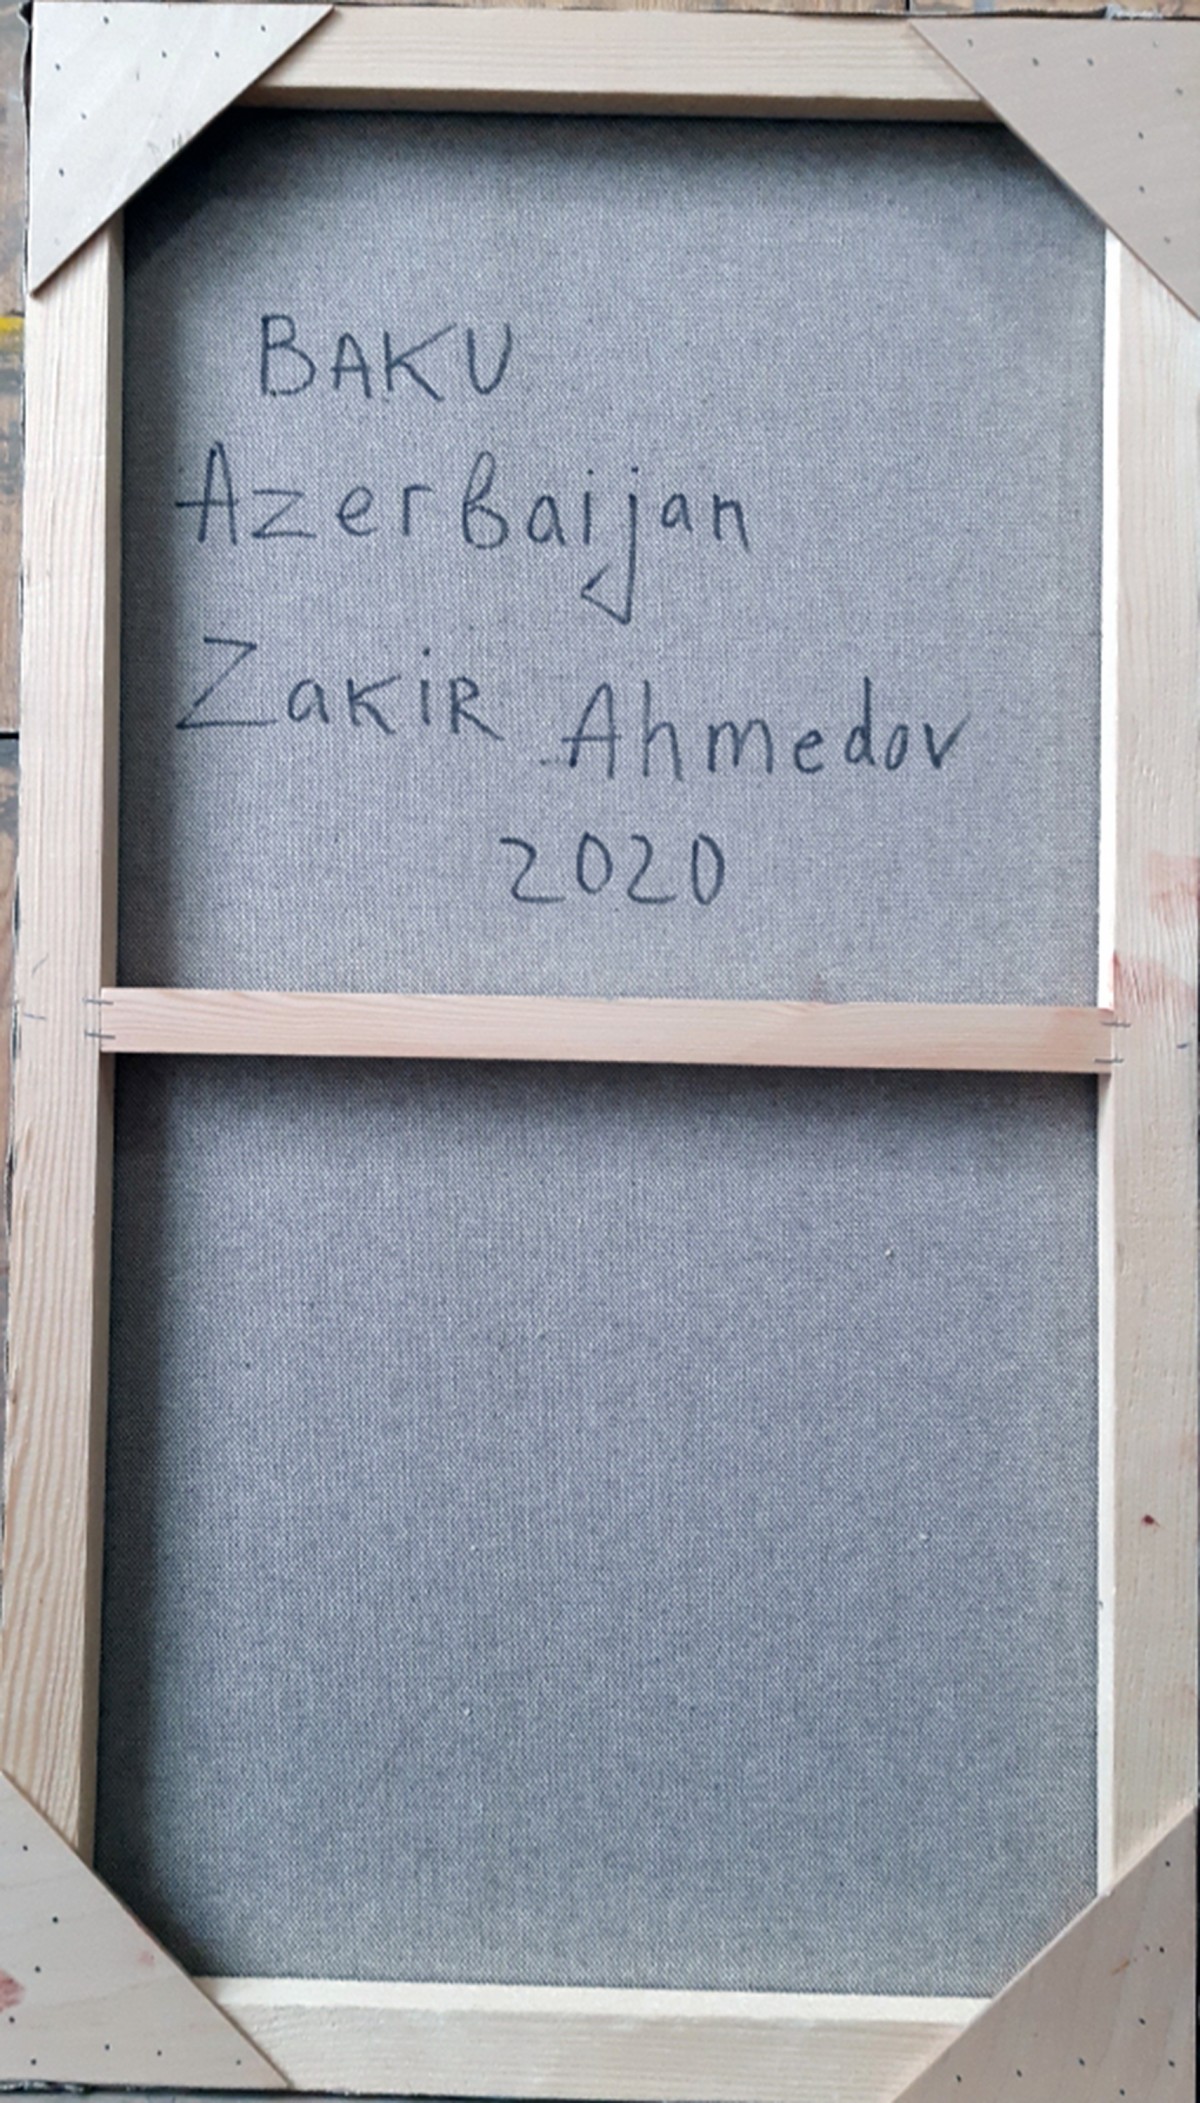 BAKU
AzerBaijan
ZaKiR Ahmedov
2020